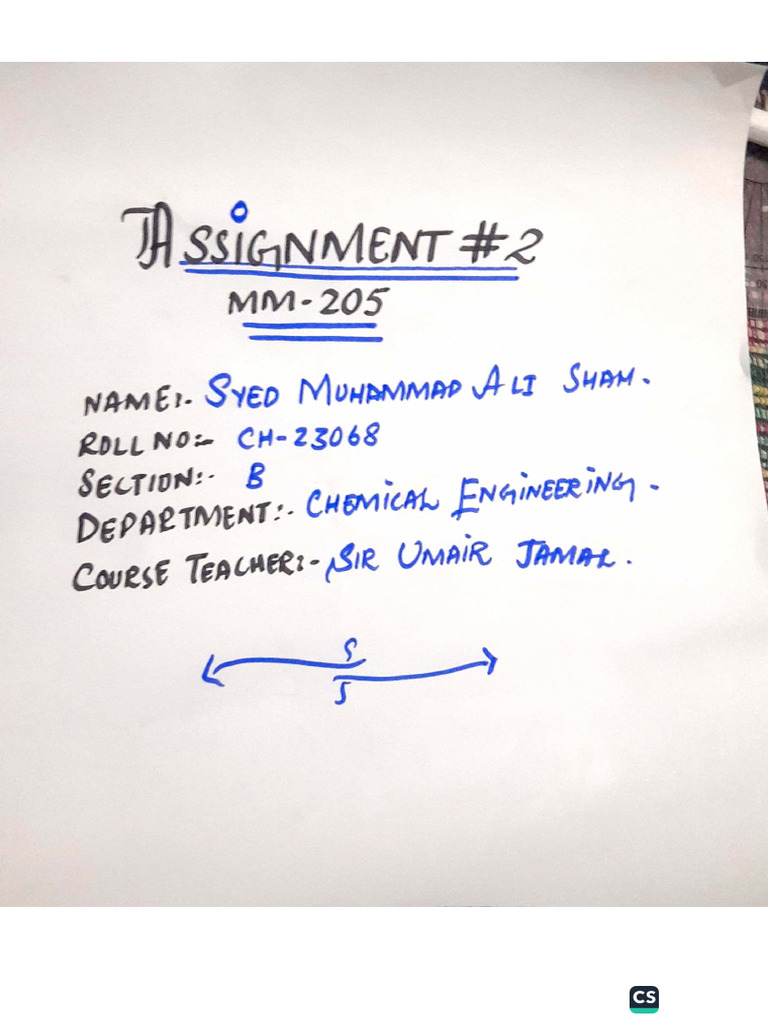 ASSIGNMENT #2
MM-205
NAME:- SYED MUHAMMAD ALI SHAH.
ROLL NO:- CH-23068
SECTION:- B
DEPARTMENT:- CHEMICAL ENGINEERING.
COURSE TEACHER:- SIR UMAIR JAMAL.
CS